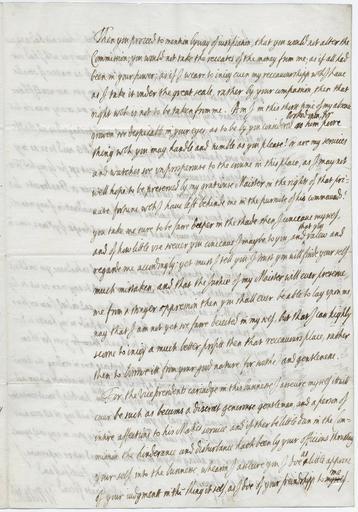 Then you proceed to mention by way of justification, that you would not alter the
Commission; you would not take the receates of the money from me; as if all had
been in your power; as if I weare to inioy even my receavourshipp wch I have
as I take it under the great seale, rather by your compassion then that
right wch is not to be taken from me. Am I in this short time of my absence
growen so despicable in your eyes, as to be by you considered as
thing wch you may handle and humble as you please? or are my services
and watches soe unprosperouse to the crowne in this place, as I may not
well hope to be preserved by my gratiouse Maister in the rights of that pri-
vate fortune wch I have left behinde me in the pursuite of his command?
you take me sure to be farr deeper in the shade then I conceave my self.
and how little soe ever you conceave I may be to you, and that you valew and
regarde me accordingly; yet must I tell you, I trust you will finde your self
much mistaken, and that the justice of my Maister will ever preserve
me from a stronger oppression then you shall ever be able to lay upon me
nay that I am not yet soe farr dejected in my self, but that I can highly
scorne to inioy a much better profitt then that receavours place, rather
then to borrow it from your good nature, for noble and gentleman.
For the Vicepresidents carriadge in this businesse I assure my self it will
ever be such as becoms a discreet generouse gentleman, and a person of
intire affections to his Maties service: and if ther be little don in the
the hinderance and disturbance hath been by your officious thrusting
your self into the businesse, wherin I assure you I doe as little approve
of your judgment in the thing it self, as I doe of your friendship to me